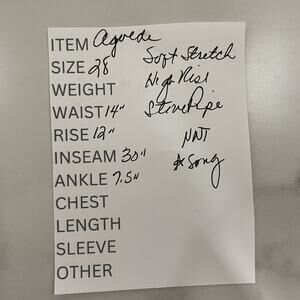 ITEM Agolde
SIZE 28 Soft Stretch
WEIGHT High Rise
WAIST 14" StovePipe
RISE 12" NWT
INSEAM 30" * Song
ANKLE 7.5"
CHEST
LENGTH
SLEEVE
OTHER